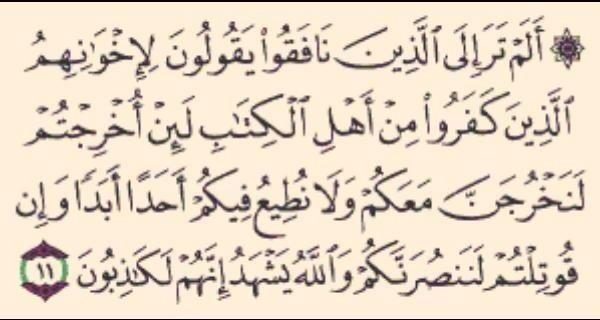 ۞ أَلَمۡ تَرَ إِلَى ٱلَّذِينَ نَافَقُواْ يَقُولُونَ لِإِخۡوَٰنِهِمُ
ٱلَّذِينَ كَفَرُواْ مِنۡ أَهۡلِ ٱلۡكِتَٰبِ لَئِنۡ أُخۡرِجۡتُمۡ
لَنَخۡرُجَنَّ مَعَكُمۡ وَلَا نُطِيعُ فِيكُمۡ أَحَدًا أَبَدٗا وَإِن
قُوتِلۡتُمۡ لَنَنصُرَنَّكُمۡ وَٱللَّهُ يَشۡهَدُ إِنَّهُمۡ لَكَٰذِبُونَ ١١